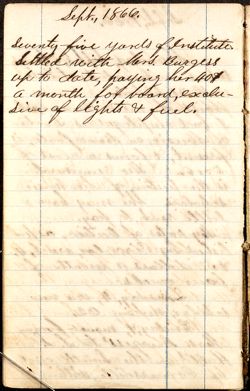 Sept, 1866.
seventy five yards of Institute.
Settled with Mrs. Burgess
up to date, paying her 40$
a month for board, exclu-
sive of lights & fuel.